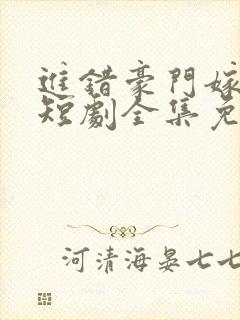 進錯豪門嫁
短劇全集免
河清海晏七七